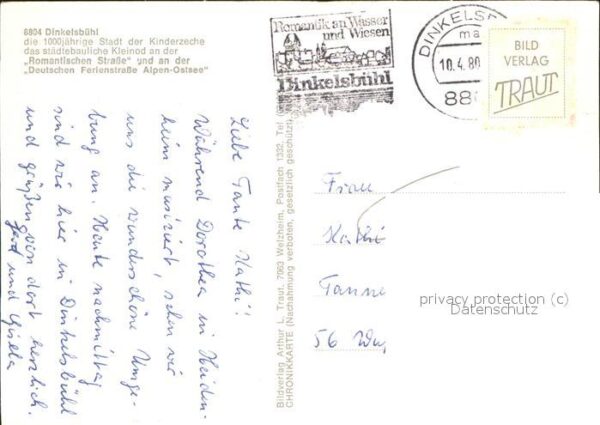 8804 Dinkelsbühl
die 1000jährige Stadt der Kinderzeche
das städtebauliche Kleinod an der
„Romantischen Straße" und an der
„Deutschen Ferienstraße Alpen-Ostsee"
Romantik an Wasser
und Wiesen
Dinkelsbühl
DINKELSB
10.4.80
BILD
VERLAG
TRAUT
Liebe Tante Kathi!
Während Dorothea in Heiden-
heim musiziert, sehn wir
uns die wunderschöne Umge-
bung an. Heute nachmittag
sind wir hier in Dinkelsbühl
und grüßen von dort herzlich.
Gerd und Gisela
Bildverlag Arthur L. Traut, 7063 Welzheim, Postfach 1332, Tel
CHRONIKKARTE (Nachahmung verboten, gesetzlich geschützt)
Frau
Kathi
Tanne
56 Wup
privacy protection (c)
Datenschutz